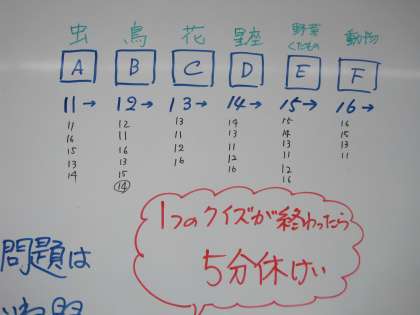 虫 鳥 花 星座 野菜 くだもの 動物
A B C D E F
11→ 12→ 13→ 14→ 15→ 16→
11 12 13 14 15 16
16 11 11 13 14 15
15 16 12 11 13 13
13 13 16 12 11 11
14 15 16 12
14 16
1つのクイズが終わったら
5分休けい
問題は